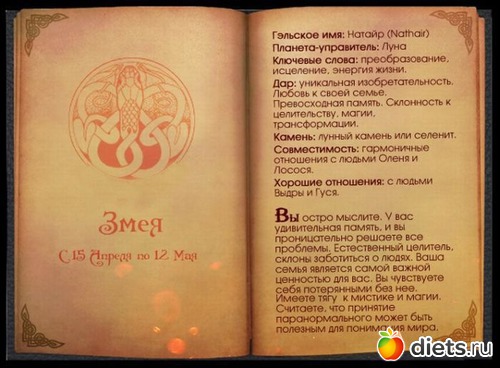 Змея
С 15 Апреля по 12 Мая
Гэльское имя: Натайр (Nathair)
Планета-управитель: Луна
Ключевые слова: преобразование,
исцеление, энергия жизни.
Дар: уникальная изобретательность.
Любовь к своей семье.
Превосходная память. Склонность к
целительству, магии,
трансформации.
Камень: лунный камень или селенит.
Совместимость: гармоничные
отношения с людьми Оленя и
Лосося.
Хорошие отношения: с людьми
Выдры и Гуся.
Вы остро мыслите. У вас
удивительная память, и вы
проницательно решаете все
проблемы. Естественный целитель,
склоны заботиться о людях. Ваша
семья является самой важной
ценностью для вас. Вы чувствуете
себя потерянными без нее.
Имеете тягу к мистике и магии.
Считаете, что принятие
паранормального может быть
полезным для понимания мира.
diets.ru